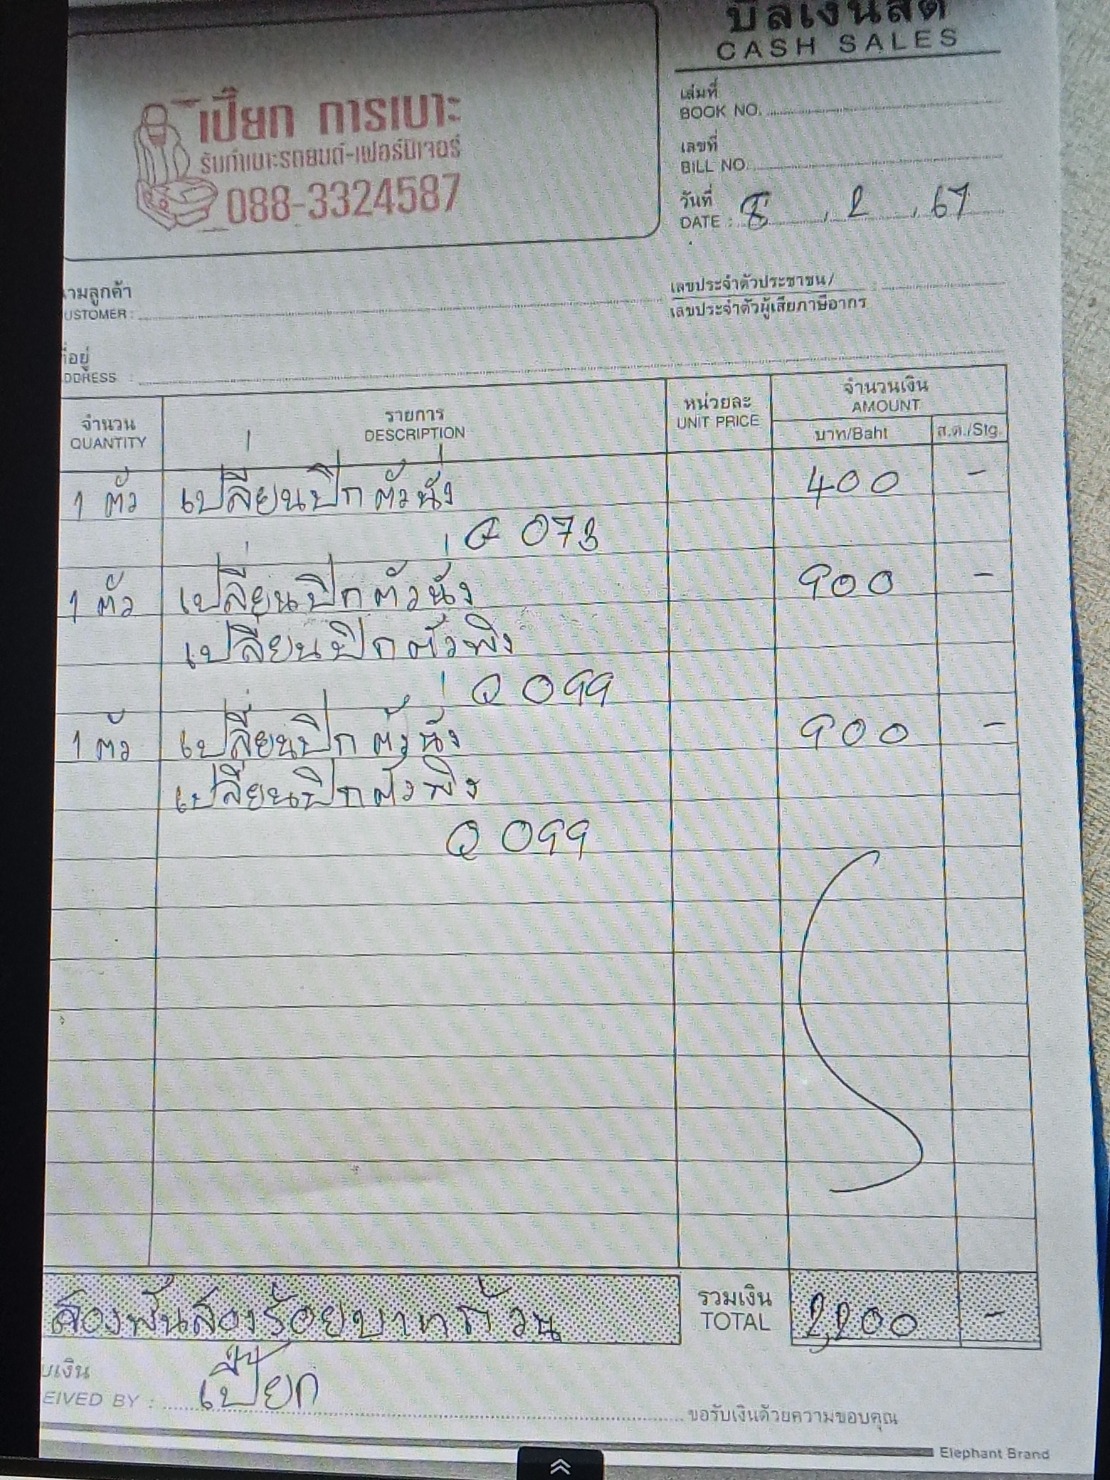 บิลเงินสด
CASH SALES
เปี๊ยก การเบาะ
รับทำเบาะรถยนต์-เฟอร์นิเจอร์
088-3324587
เล่มที่
BOOK NO.
เลขที่
BILL NO.
วันที่
DATE : 8 , 2 , 67
ามลูกค้า
USTOMER :
เลขประจำตัวประชาชน/
เลขประจำตัวผู้เสียภาษีอากร
ที่อยู่
DDRESS :
จำนวน
QUANTITY
รายการ
DESCRIPTION
หน่วยละ
UNIT PRICE
จำนวนเงิน
AMOUNT
บาท/Baht ส.ต./Stg.
1 ตัว เปลี่ยนปีกตัวนั่ง 400 -
Q 073
1 ตัว เปลี่ยนปีกตัวนั่ง 900 -
เปลี่ยนปีกตัวพิง
Q 099
1 ตัว เปลี่ยนปีกตัวนั่ง 900 -
เปลี่ยนปีกตัวพิง
Q 099
สองพันสองร้อยบาทถ้วน
รวมเงิน
TOTAL
2,200 -
บเงิน
EIVED BY : เปี๊ยก
ขอรับเงินด้วยความขอบคุณ
Elephant Brand